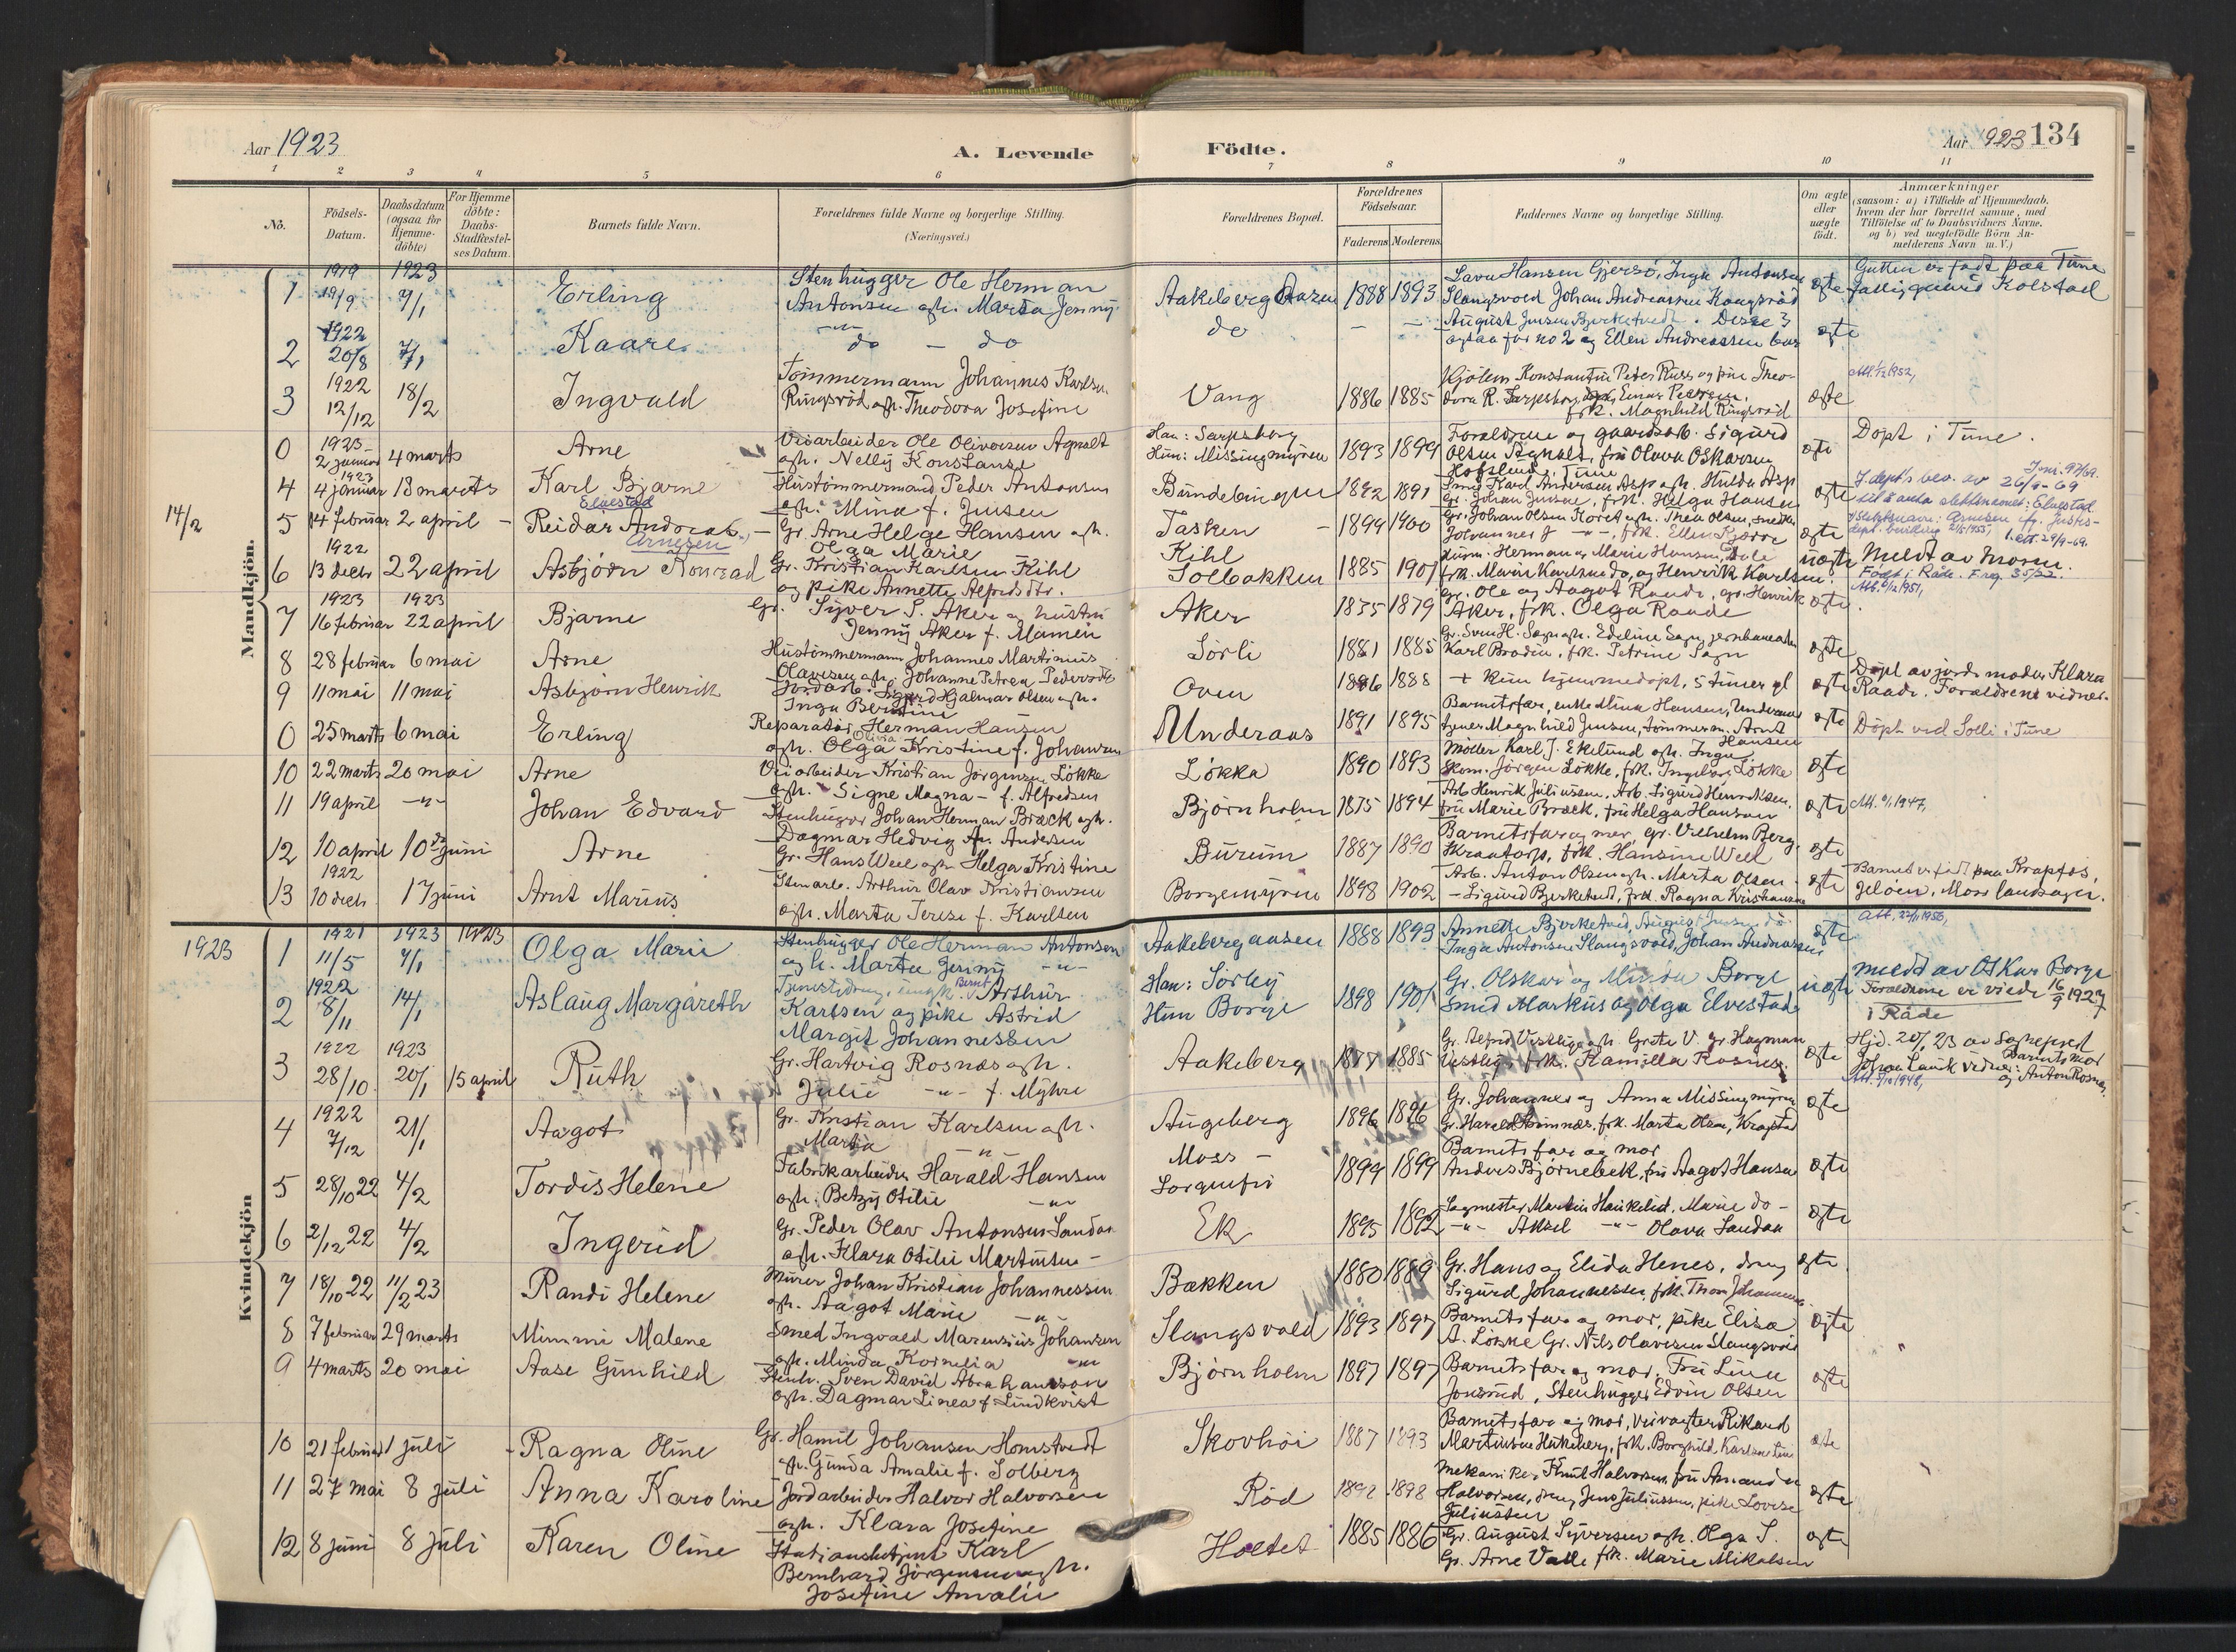 Aar 1923
A. Levende Födte.
Aar 1923 134
1 2 3 4 5 6 7 8 9 10 11
No.
Födsels-Datum.
Daabsdatum (ogsaa for Hjemme-döbte)
For Hjemme döbte: Daabs-Stadfestel-ses Datum.
Barnets fulde Navn.
Forældrenes fulde Navne og borgerlige Stilling. (Næringsvei.)
Forældrenes Bopæl.
Forældrenes Födselsaar.
Faderens Moderens
Faddernes Navne og borgerlige Stilling.
Om ægte eller uægte födt.
Anmærkninger
(saasom: a) i Tilfælde af Hjemmedaab, hvem der har forrettet samme, med Tilföielse af to Daabsvidners Navne. og b) ved uægtefödte Börn An-melderens Navn m. V.)
Mandkjön.
1 1919 19/9 1923 7/1 Erling
Stenhugger Ole Herman
Antonsen og h. Marta Jenny
Aakeberg Aasen 1888 1893
Lava Hansen Gjersö, Inga Antonsen
Slangsvold Johan Andreassen Kangsröd
ægte
Gutten er født paa Tune
2 1922 20/8 7/1 Kaare
do - do
do - -
August Jensen Bjerketvedt. Disse 3
ogsaa for no 2 og Ellen Andreassen
ægte
3 1922 12/12 18/2 Ingvald
Tömmermann Johannes Karlsen
Ringsröd og h. Theodora Josefine
Vang 1886 1885
Kjölem Konstantin Peter Russ og frue Theo-
dora R. Sarpsborg, Einar Petersen,
frk. Magnhild Ringsröd
ægte
Att. 1/2 1952,
0 1923 2 januar 4 marts Arne
Veiarbeider Ole Oliversen Agnalt
og h. Nelly Konstanse
Han: Sarpsborg
Hun: Missingmyren 1893 1899
Forældrene og gaardsarb. Sigurd
Olsen Agnalt, fru Olava Oskarsen
Hafslund, Tune
ægte
Döpt i Tune.
4 1923 4 januar 18 marts Karl Bjarne
Elvestad
Hustömmermand Peder Antonsen
og h. Mina f. Jensen
Bundebingen 1892 1891
Smed Karl Andersen Asp og h. Hulda Asp
Gr. Johan Jensen, frk. Helga Hansen
ægte
J. dept's bev. av 26/9-69
til å anta slektsnavnet: Elvestad
14/2
5 14 februar 2 april - Reidar Andreas
Arnesen
Gr. Arne Helge Hansen og h.
Olga Marie
Tasken - 1899 1900
Gr. Johan Olsen Koret og h. Thea Olsen, snedker
Johannes J -"-, frk. Ellen Bjerre
ægte
Slektsnavn: Arnesen
6 1922 13 decbr 22 april Asbjörn Konrad
Gr. Kristian Karlsen Kihl
og pike Annette Alfredsdtr.
Kihl
Solbakken 1885 1901
Herman og Marie Hansen, Dale
frk. Marie Karlsen do, og Henrik Karlsen.
uægte
Meldt av moren.
Födt i Råde. Frag. 35/22.
Att. 6/12 1951,
7 1923 16 februar 1923 22 april Bjarne
Gr. Syver S. Aker og hustru
Jenny Aker f. Mamen
Aker 1875 1879
Gr. Ole og Aagot Raade, gr. Henrik
Aker, frk. Olga Raade
ægte.
8 28 februar 6 mai Arne
Hustömmermann Johannes Martinius
Olavesen og h. Johanne Petrea Pedersdtr
Sörli 1881 1885
Gr. Sven H. Sogn og h. Edeline Sogn, jernbanearb.
Karl Brodin, frk. Petrine Sogn
ægte
9 11 mai 11 mai Asbjörn Henrik
Jordarb. Sigurd Hjalmar Olsen og h.
Inga Berntine
Oven 1886 1888
+ kun hjemmedöpt, 5 timer gl
ægte
Döpt av jordmoder Klara
Raade. Forældrene vidner.
0 25 marts 6 mai Erling
Reparatör Herman Hansen
og h. Olga Olivia Kristine f. Johansen
Underaas 1891 1895
Barnets far, enke Mina Hansen, Underaas
Magnhild Jensen, tömmerm. Arnt
Hansen
ægte
Döpt ved Solli i Tune
10 22 marts 20 mai Arne
Veiarbeider Kristian Jörgensen Lökke
og h. Signe Magna - f. Alfredsen
Lökka 1890 1893
Möller Karl J. Ekelund og h. Inga
Skom. Jörgen Lökke, frk. Ingeborg Lökke
ægte
11 19 april -"- Johan Edvard
Stenhugger Johan Herman Bræck og h.
Dagmar Hedvig An. Andersen
Björnholm 1875 1894
Arb Henrik Juliussen, Arb. Sigurd Henriksen,
fru Marie Bræck, fru Helga Hansen
ægte
Att. 6/1 1947,
12 10 april 10 de juni Arne
Gr. Hans Weel og h. Helga Kristine
Burum 1887 1890
Barnets far og mor, gr. Vilhelm Berg,
Skraatorp, frk. Hansine Weel
ægte
13 1922 10 decb. 17 juni Arnt Marius
Stenarb. Arthur Olav Kristiansen
og h. Marta Terese f. Karlsen
Borgemyren 1898 1902
Arb. Anton Olsen og h. Marta Olsen
- Sigurd Bjerketvedt, frk. Ragna Kristiansen
ægte
Barnet er födt paa Kraptös,
Jelöen, Moss landsogn.
Att. 22/11 1956,
Kvindekjön
1923
1 1921 11/5 1923 7/1 1923 Olga Marie
Stenhugger Ole Herman Antonsen
og h. Marta Jenny -"-
Aakebergaasen 1888 1893
Annette Bjerketvedt, August Jensen do
Inga Antonsen Slangsvold, Johan Andreassen
ægte
2 1922 8/11 14/1 Aslaug Margareth
Tjenestedreng, ungk. Bernt Arthur
Karlsen og pike Astrid
Margit Johannessen
Han: Sörby
Hun Borge 1898 1901
Gr. Olskar og Minda Borge
Smed Markus og Olga Elvestad
uægte
meldt av Oskar Borge
Forældrene er viede 16/9 1927
i Råde
3 1922 28/10 1923 20/1 15 april Ruth
Gr. Hartvig Rosnæs og h.
Julie -"- f. Myhre
Aakeberg 1877 1885
Gr. Alfred Vestby og h. Grete V. gr Hagman
Vestby, frk. Kamilla Rosnes.
ægte
Hjd. 20/1 23 av Sogneprest
Johan Lavik vidner: Barnets mor
og Anton Rosnæs
Att. 5/10 1948,
4 1922 7/12 21/1 Aagot
Gr. Kristian Karlsen og h.
Marta -"-
Augeberg 1896 1896
Gr. Johannes og Anna Missingmyren
Gr. Harald Brimnæs, frk. Marta Olsen, Krapstad
ægte
5 28/10 22 4/2 Tordis Helene
Fabrikarbeider Harald Hansen
og h. Betzy Otilie -"-
Moss -
Sorgenfri 1899 1899
Barnets far og mor
Anders Björnebek, fru Aagot Hansen
ægte
6 2/12 22 4/2 Ingerid
Gr. Peder Olav Antonsen Sandaa
og h. Klara Otilie Martinsen -
Ek 1895 1892
Sagmester Martin Haukelid, Marie do -
-"- Aksel -"- Olava Sandaa
ægte
7 18/10 22 11/2 23 Randi Helene
Murer Johan Kristian Johannessen
og h. Aagot Marie -"-
Bækken 1880 1889
Gr. Hans og Elida Henes, dreng
Sigurd Johannessen, frk. Thora Johannessen
ægte
8 7 februar 29 marts Mimmi Malene
Smed Ingvald Marensius Johansen
og h. Minda Kornelia -"-
Slangsvold 1893 1897
Barnets far og mor, pike Elisa
A. Lökke Gr. Nils Olavesen Slangsvold
ægte
9 4 marts 20 mai Aase Gunhild
Stenh. Sven David Abrahamson
og h. Dagmar Linea f Lindkvist
Björnholm 1897 1897
Barnets far og mor, Fru Lina
Jonsrud, Stenhugger Edvin Olsen
ægte
10 21 februar 1 juli - Ragna Oline
Gr. Hamil Johansen Homstvedt
og h. Gunda Amalie f. Solberg
Skovhöi 1887 1893
Barnets far og mor, veivogter Rikard
Martinsen Hukeberg, frk. Borghild Karlsen Lien
ægte
11 27 mai 8 juli Anna Karoline
Jordarbeider Halvor Halvorsen
og h. Klara Josefine
Röd 1892 1898
Mekaniker Knut Halvorsen, fru Amanda
Halvorsen, dreng Jens Juliussen, pike Lovise
Juliussen
ægte
12 8 juni 8 juli Karen Oline
Stationsbetjent Karl
Bernhard Jörgensen og h.
Josefine Amalie
Holtet 1885 1886
Gr. August Syversen og h. Olga S.
Gr. Arne Valle frk. Marie Mikalsen
ægte